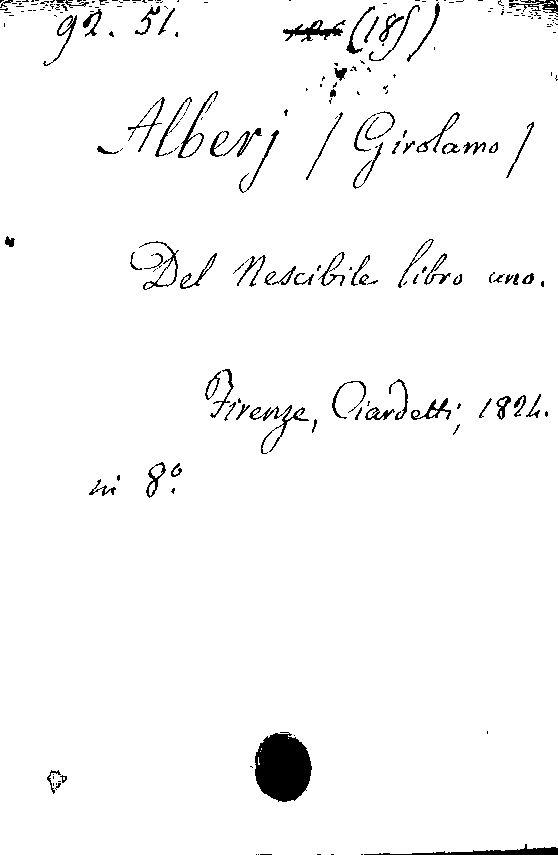 92. 51. (18f)
Alberj / Girolamo /
Del Nescibile libro uno.
Firenze, Ciardetti, 1824.
in 8º.